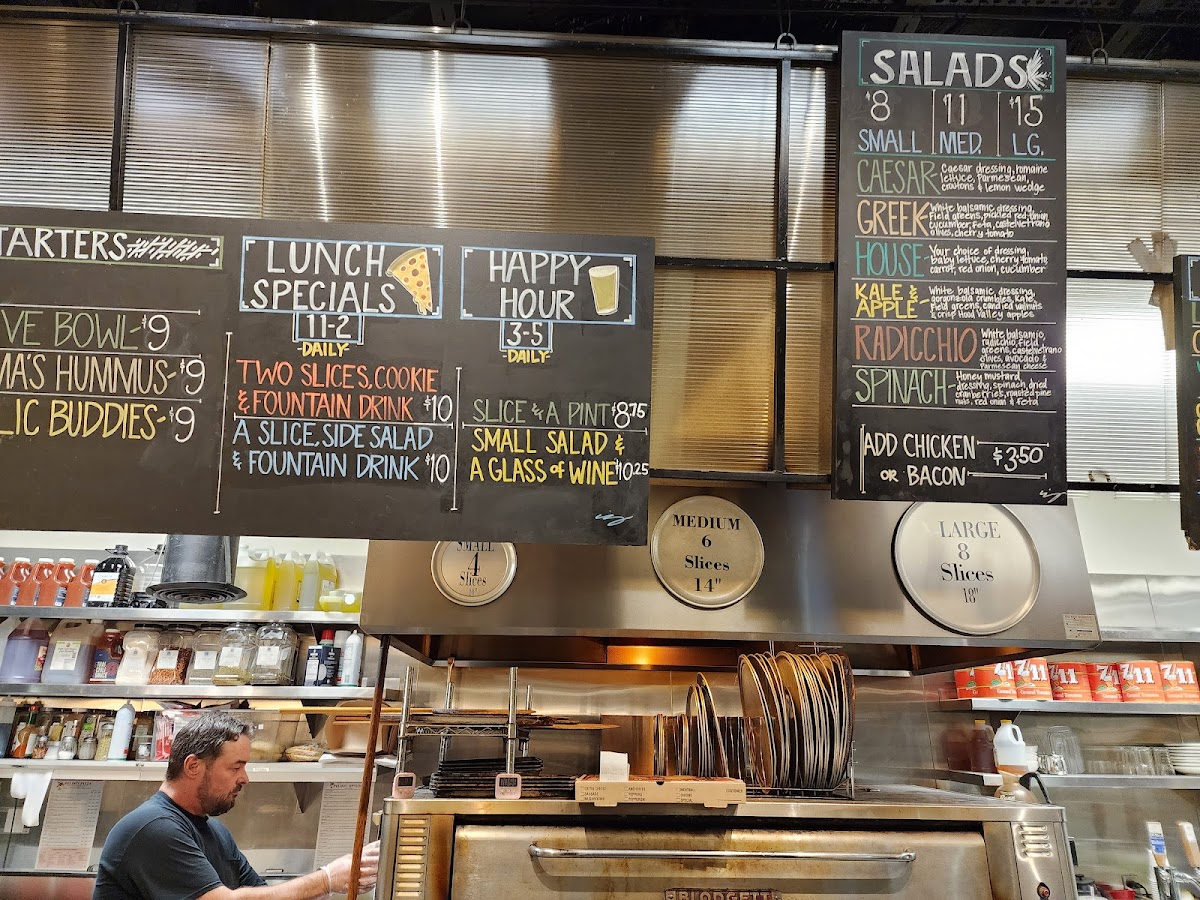 TARTERS
VE BOWL-$9
MA'S HUMMUS-$9
LIC BUDDIES-$9
LUNCH
SPECIALS
11-2
-DAILY-
TWO SLICES, COOKIE
& FOUNTAIN DRINK $10
A SLICE, SIDE SALAD
& FOUNTAIN DRINK $10
HAPPY
HOUR
3-5
-DAILY-
SLICE & A PINT $8.75
SMALL SALAD &
A GLASS of WINE $10.25
SALADS
$8 11 $15
SMALL MED. LG.
CAESAR- Caesar dressing, romaine
lettuce, Parmesean,
croutons & lemon wedge
GREEK- White balsamic dressing,
Field greens, pickled red onion
cucumber, Feta, castelvetrano
olives, cherry tomato
HOUSE- Your choice of dressing,
baby lettuce, cherry tomato,
carrot, red onion, cucumber
KALE &
APPLE- White balsamic dressing,
gorgonzola crumbles, kale,
Field greens, candied walnuts
& crisp Hood Valley apples
RADICCHIO White balsamic,
radicchio, field
greens, castelvetrano
olives, avocado &
Parmesan cheese
SPINACH- Honey mustard
dressing, spinach, dried
cranberries, roasted pine
nuts, red onion & feta
ADD CHICKEN
OR BACON $3.50
SMALL
4
Slices
MEDIUM
6
Slices
14"
LARGE
8
Slices
18"
7/11
7/11
7/11
7/11
7/11
BLODGETT